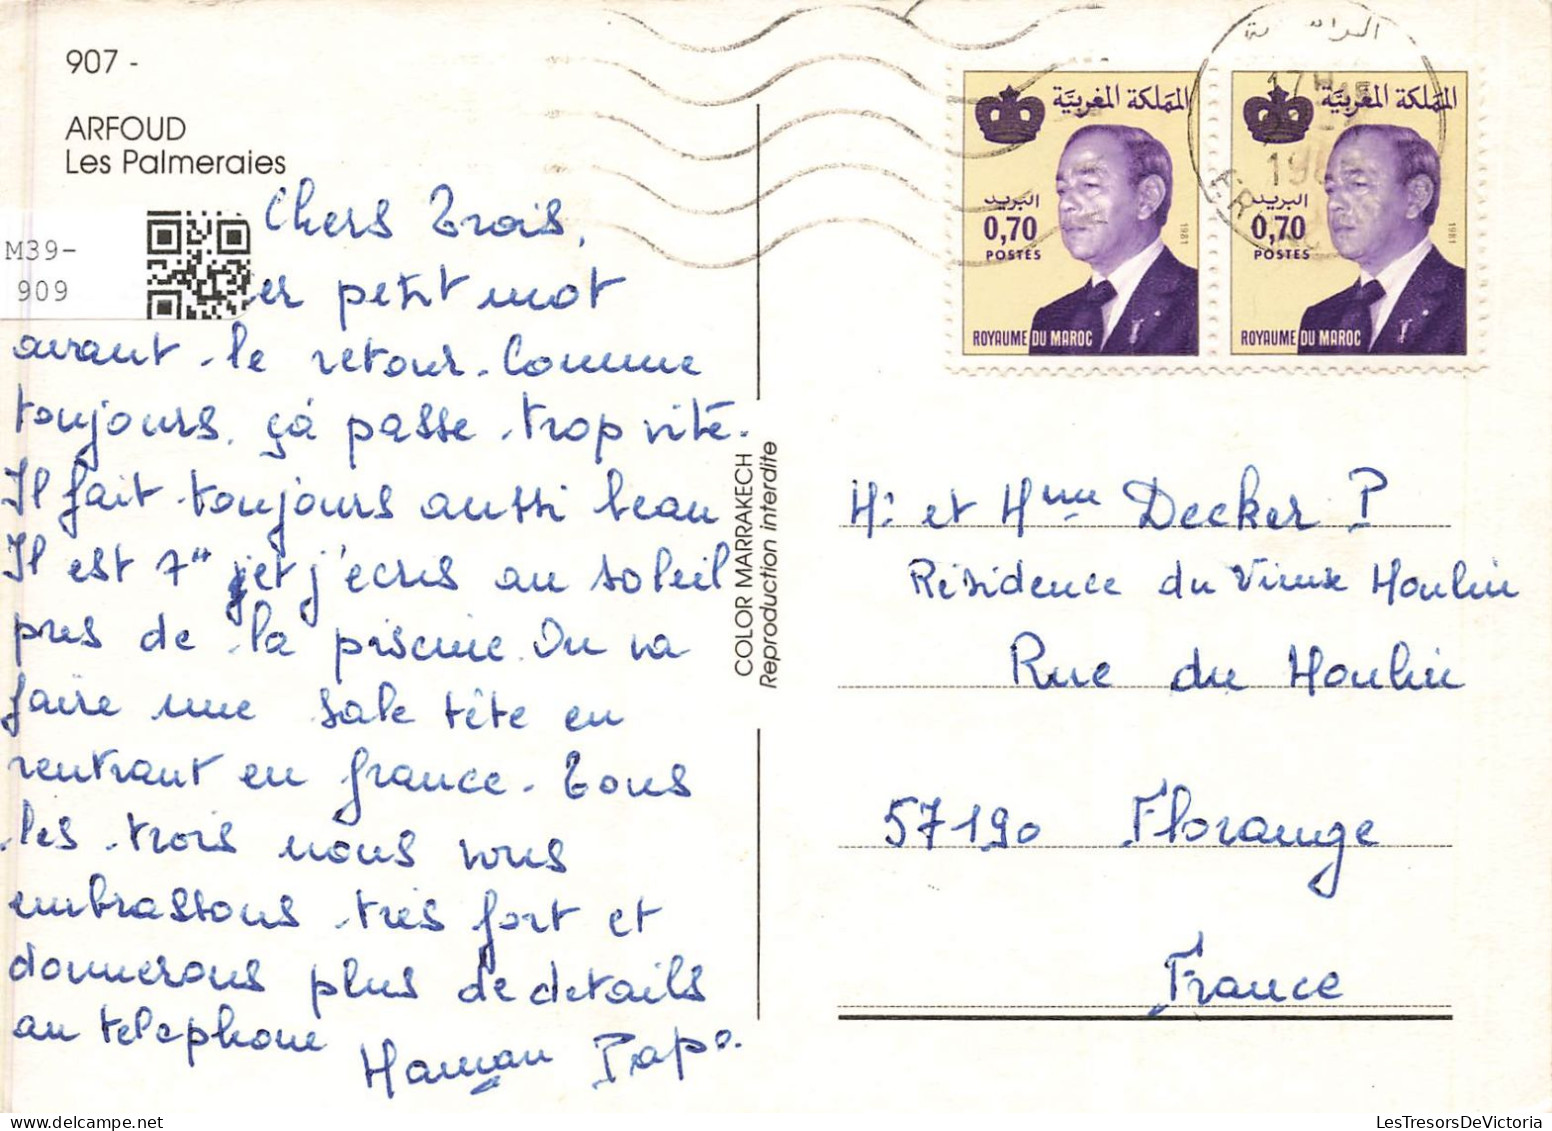 907 -
ARFOUD
Les Palmeraies
M39-
909
Chers Trois,
er petit mot
avant le retour. Comme
toujours, çà passe trop vite.
Il fait toujours aussi beau
Il est 7" et j'écris au soleil
pres de la piscine. On va
faire une sale tête en
rentrant en france. Tous
les trois nous vous
embrassons très fort et
donnerons plus de details
au telephone
Maman Papo.
COLOR MARRAKECH
Reproduction interdite
المملكة المغربية
البريد
0,70
POSTES
1981
ROYAUME DU MAROC
المملكة المغربية
البريد
0,70
POSTES
1981
ROYAUME DU MAROC
17H
Mr et Mme Decker P
Résidence du Vieux Moulin
Rue du Moulin
57190 Florange
France
LesTresorsDeVictoria